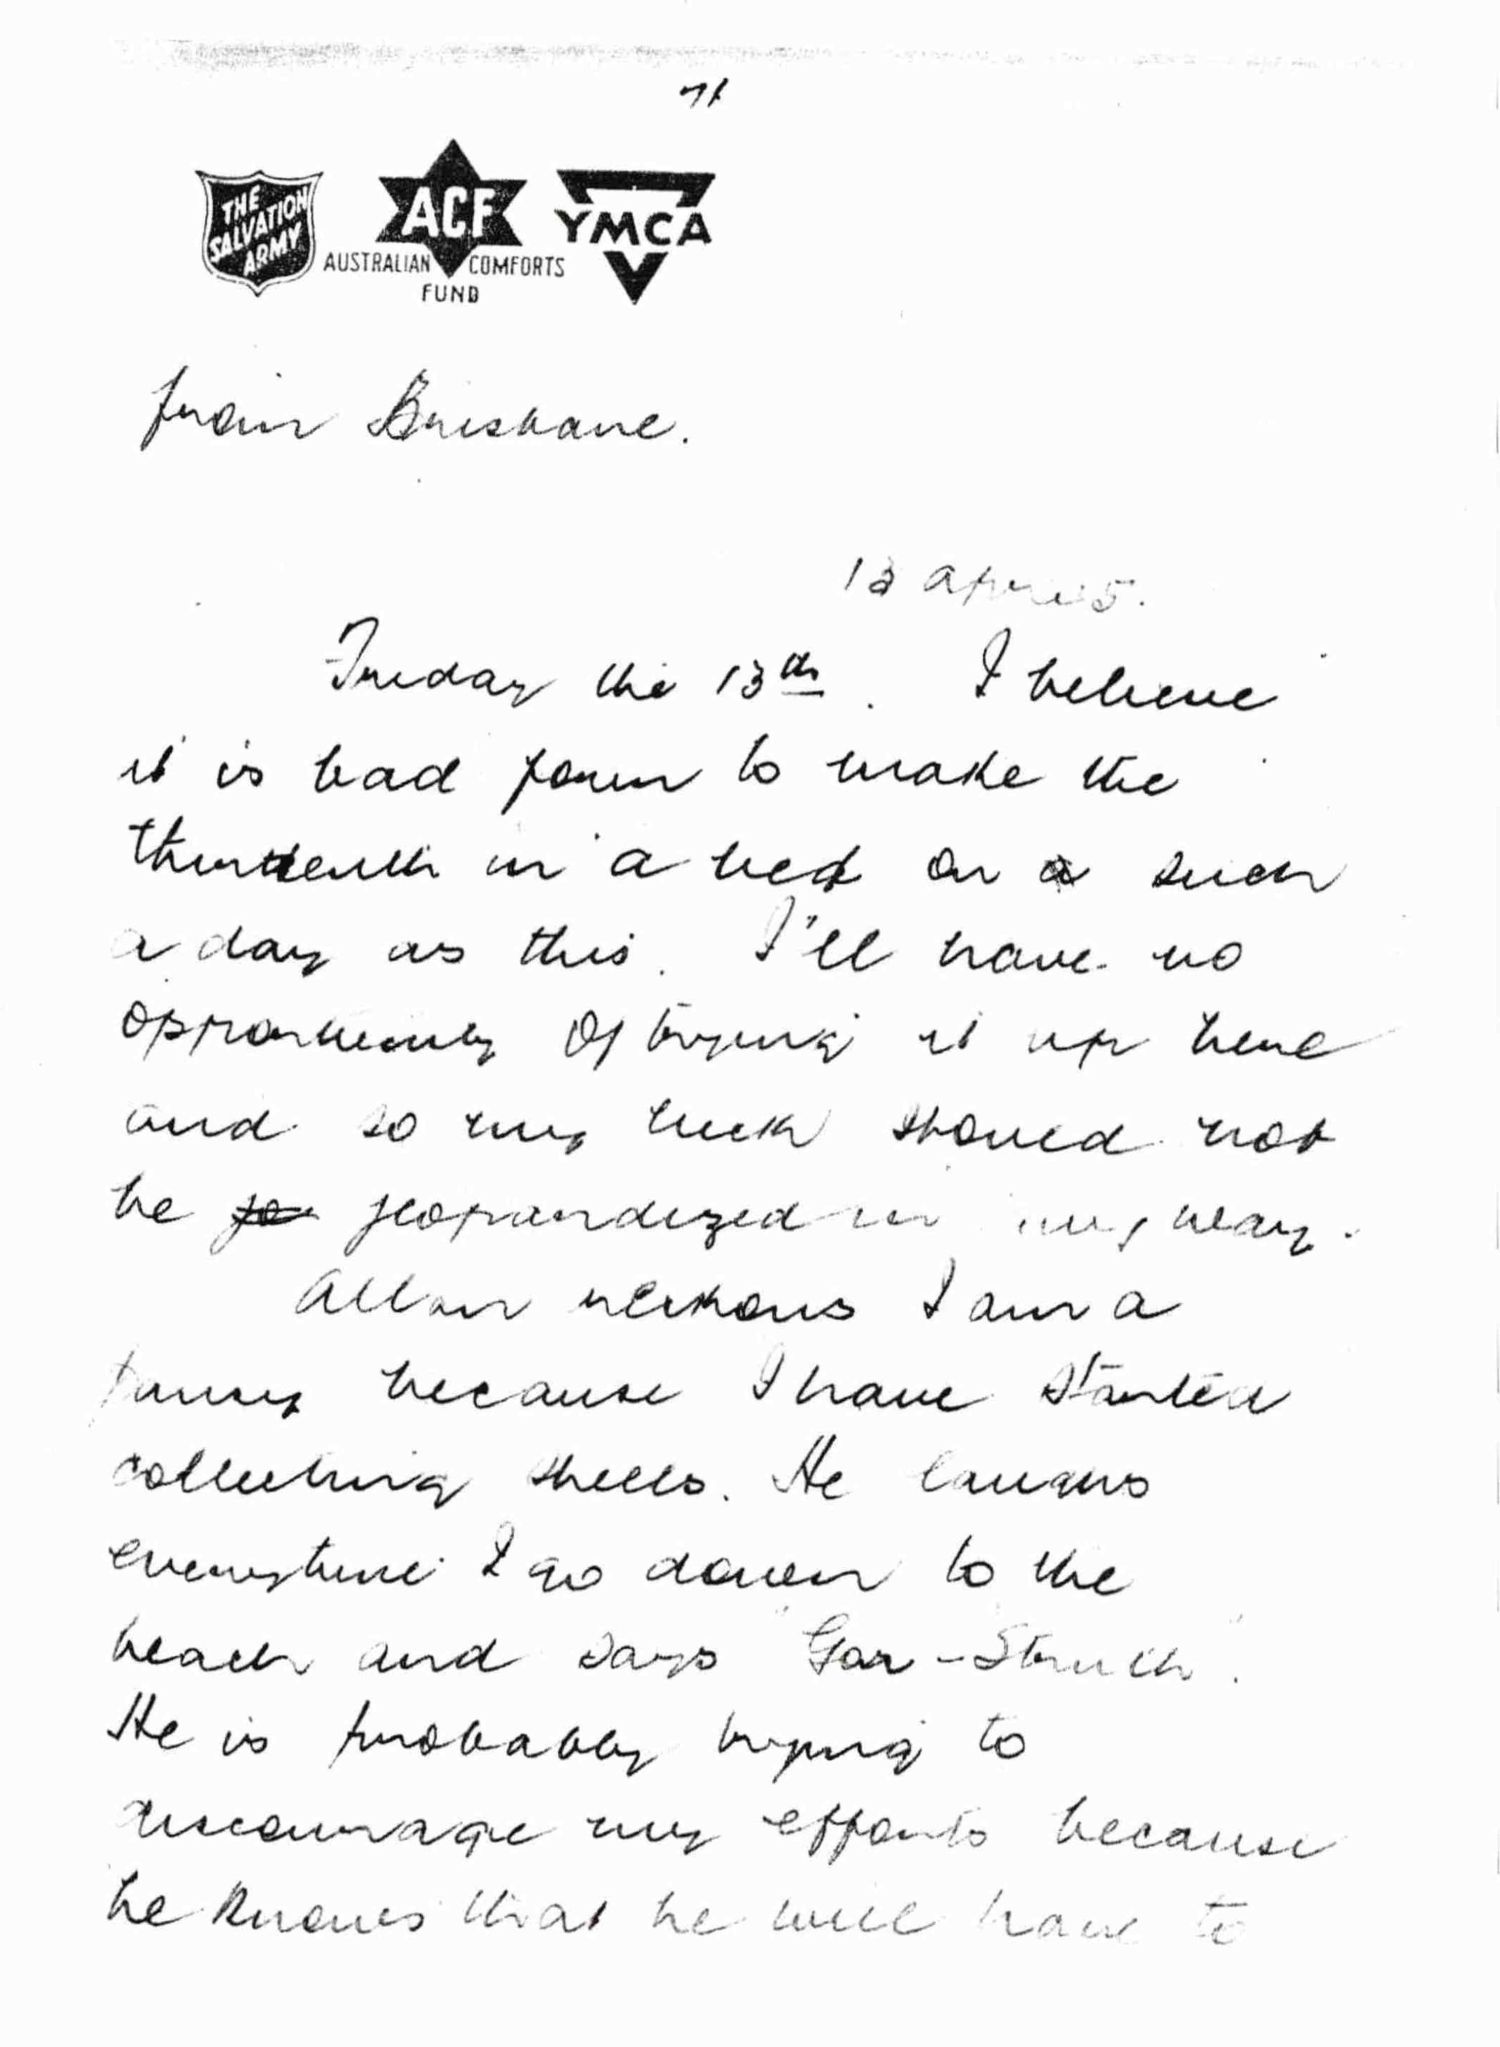 71
THE
SALVATION
ARMY
ACF
AUSTRALIAN COMFORTS
FUND
YMCA
from Brisbane.
13 April 5.
Friday the 13th. I believe
it is bad form to make the
thirteenth in a bed on a such
a day as this. I'll have no
opportunity of trying it up here
and so my luck should not
be jeopardized in any way.
Allan reckons I am a
pansy because I have started
collecting shells. He laughs
everytime I go down to the
beach and says "Gor-Struth".
He is probably trying to
discourage my efforts because
he knows that he will have to